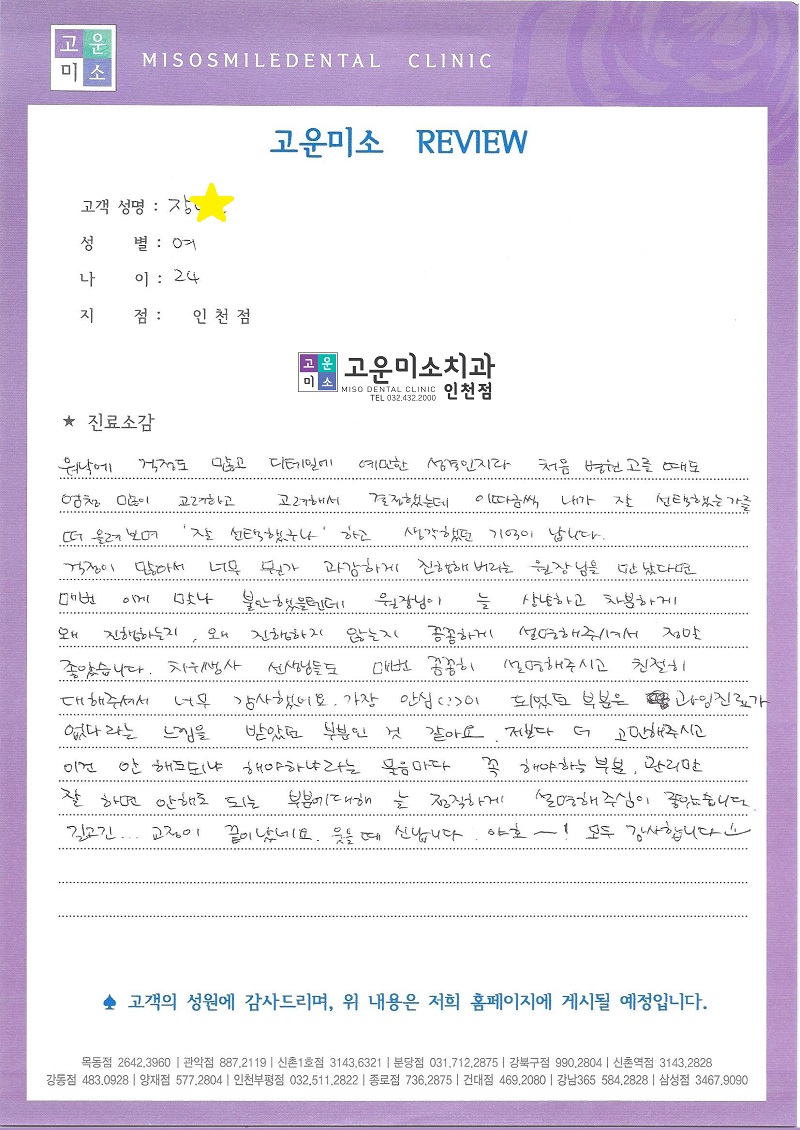 고운
미소
MISOSMILEDENTAL CLINIC
고운미소 REVIEW
고객 성명 : 장
성 별 : 여
나 이 : 24
지 점 : 인천점
고운
미소
고운미소치과
MISO DENTAL CLINIC
TEL 032.432.2000
인천점
★ 진료소감
워낙에 걱정도 많고 디테일에 예민한 성격인지라 처음 병원 고를 때도
엄청 많이 고려하고 고려해서 결정했는데 이따금씩 내가 잘 선택했는가를
떠올려보며 '잘 선택했구나' 하고 생각했던 기억이 납니다.
걱정이 많아서 너무 뭔가 과감하게 진행해버리는 원장님을 만났다면
매번 이게 맞나 불안했을텐데 원장님이 늘 상냥하고 차분하게
왜 진행하는지, 왜 진행하지 않는지 꼼꼼하게 설명해주셔서 정말
좋았습니다. 치위생사 선생님들도 매번 꼼꼼히 설명해주시고 친절히
대해주셔서 너무 감사했네요. 가장 안심(?)이 되었던 부분은 과잉진료가
없다라는 느낌을 받았던 부분인 것 같아요. 저보다 더 고민해주시고
이건 안 해도되나 해야하나라는 물음마다 꼭 해야하는 부분, 관리만
잘 하면 안해도 되는 부분에대해 늘 정직하게 설명해주심이 좋았습니다.
길고긴... 교정이 끝이났네요. 웃을 때 신납니다. 야호~! 모두 감사합니다
♠ 고객의 성원에 감사드리며, 위 내용은 저희 홈페이지에 게시될 예정입니다.
목동점 2642.3960 | 관악점 887.2119 | 신촌1호점 3143.6321 | 분당점 031.712.2875 | 강북구점 990.2804 | 신촌역점 3143.2828
강동점 483.0928 | 양재점 577.2804 | 인천부평점 032.511.2822 | 종로점 736.2875 | 건대점 469.2080 | 강남365 584.2828 | 삼성점 3467.9090